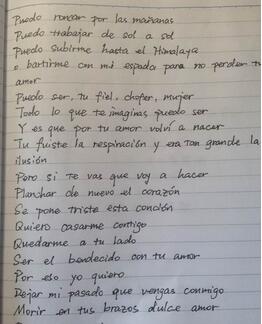 Puedo roncar por las mañanas
Puedo trabajar de sol a sol
Puedo subirme hasta el Himalaya
o bartirme con mi espada para no perder tu
amor
Puedo ser, tu fiel, chofer, mujer
Todo lo que te imaginas puedo ser
Y es que por tu amor volví a nacer
Tu fuiste la respiración y era tan grande la
ilusión
Pero si te vas que voy a hacer
Planchar de nuevo el corazón
Se pone triste esta conción
Quiero casarme contigo
Quedarme a tu lado
Ser el bendecido con tu amor
Por eso yo quiero
Dejar mi pasado que vengas conmigo
Morir en tus brazos dulce amor